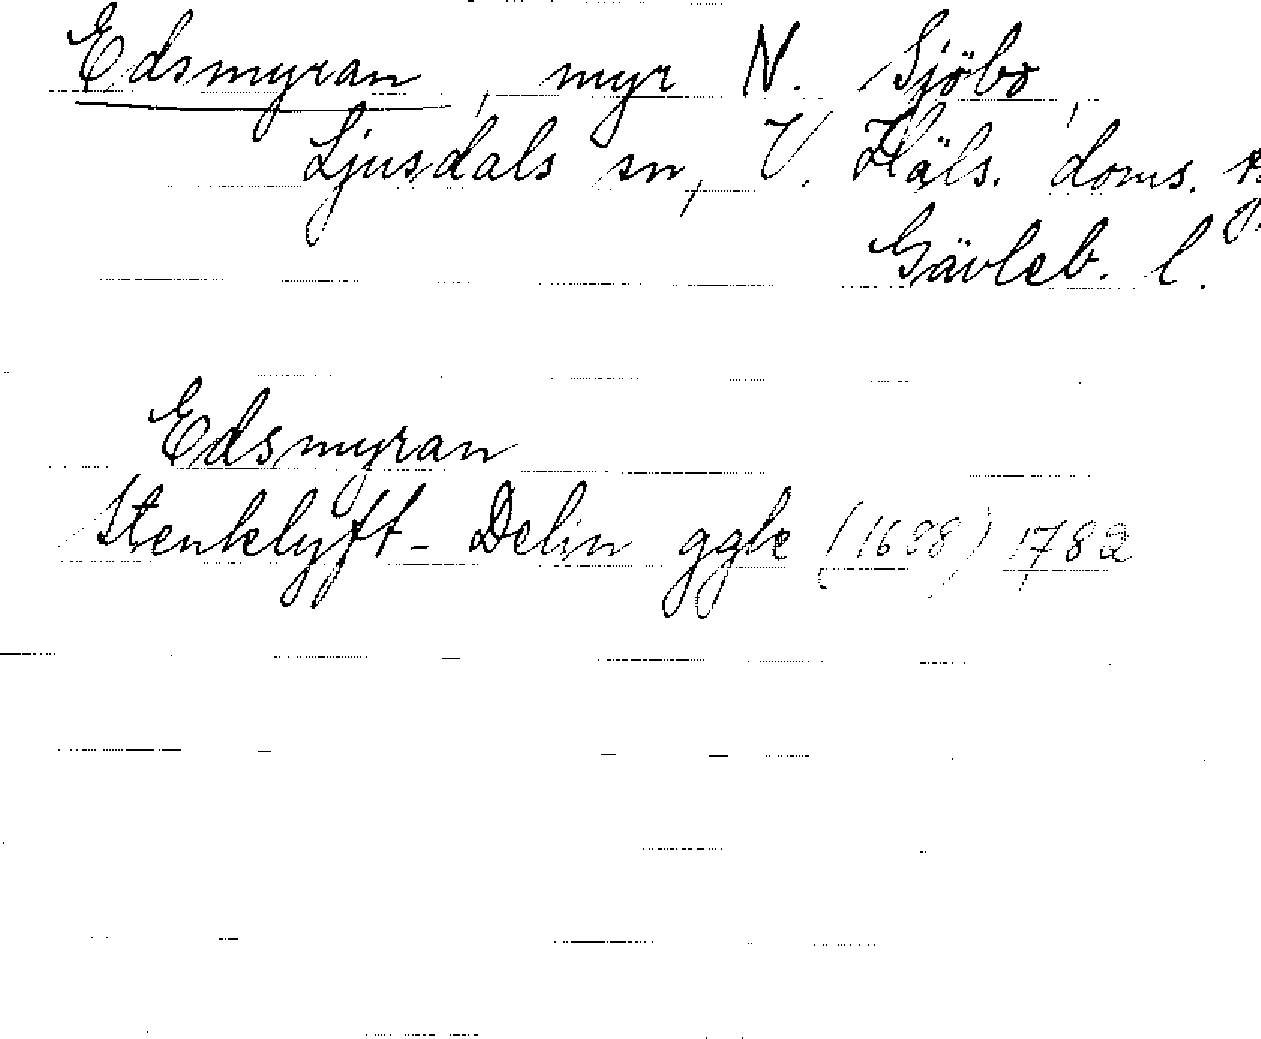 Edsmyran, myr N. Sjöbo,
Ljusdals sn, V. Häls. doms.
Gävleb. l.
Edsmyran
Stenklyft-Delin ggle (1688) 1782